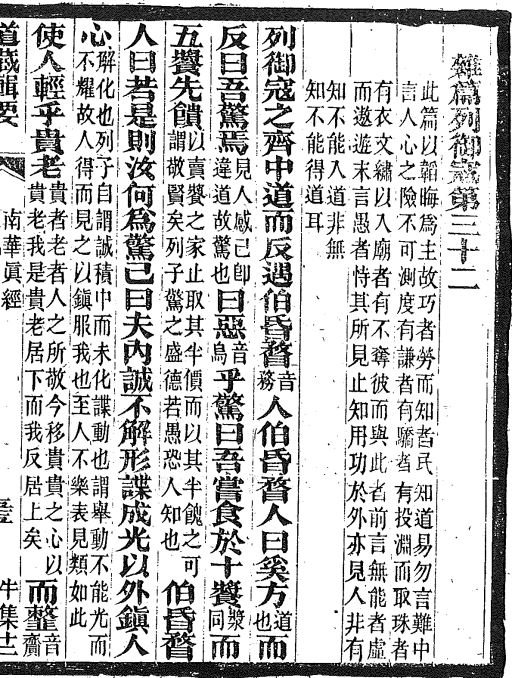 雜篇列御寇第三十二
此篇以韜晦爲主故巧者勞而知者民知道易勿言難中
言人心之險不可測度有謙者有驕者有投淵而取珠者
有衣文繡以入廟者有不奪彼而與此者前言無能者虛
而遨遊末言愚者恃其所見止知用功於外亦見人非有
知不能入道非無
知不能得道耳
列御寇之齊中道而反遇伯昏瞀音務人伯昏瞀人曰奚方道也而
反曰吾驚焉見人感己卽違道故驚也曰惡音烏乎驚曰吾嘗食於十饗漿同而
五饗先饋以賣饗之家止取其半價而以其半餽之可謂敬賢矣列子驚之盛德若愚恐人知也伯昏瞀
人曰若是則汝何爲驚己曰夫內誠不解形諜成光以外鎭人
心解化也列子自謂誠積中而未化諜動也謂舉動不能光而不耀故人得而見之以鎭服我也至人不樂表見類如此
使人輕乎貴老貴者老者人之所敬今移貴貴之心以貴老我是貴老居下而我反居上矣而𩐎音齎
道藏輯要
南華眞經
牛集